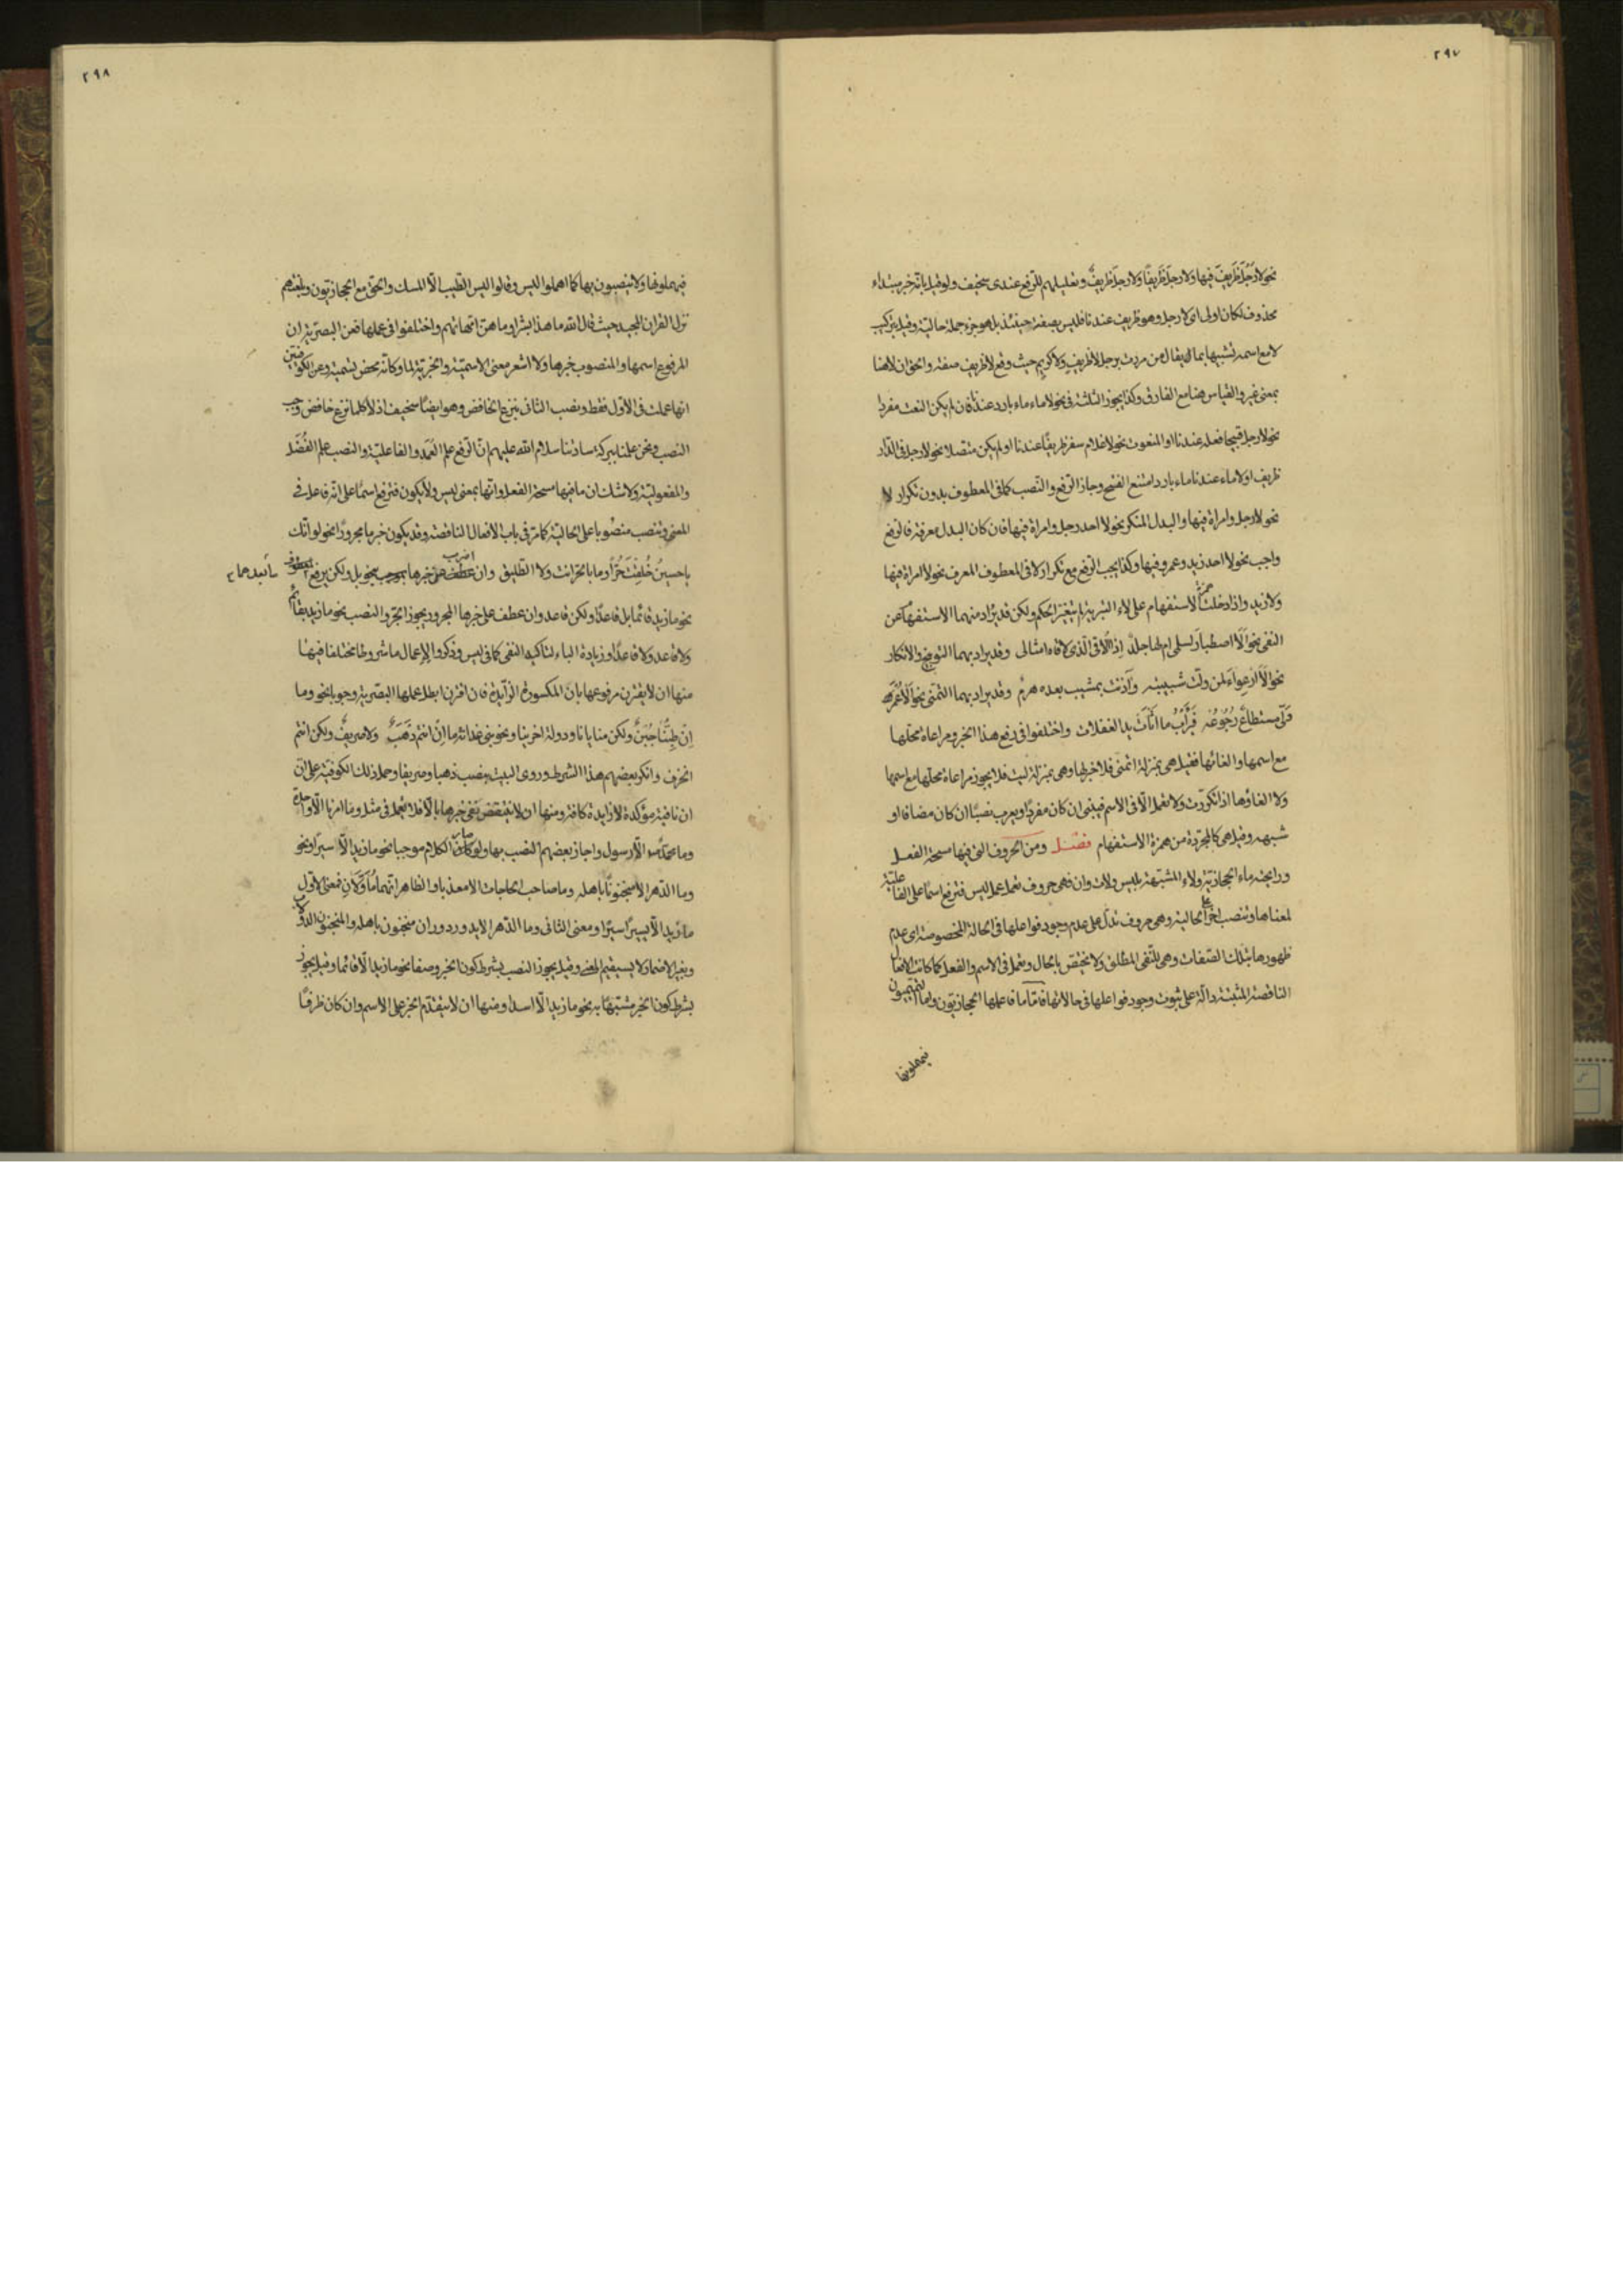 ٢٩٧
نحو لا رجلَ ظريفَ فيها ولا رجلَ ظريفًا ولا رجلَ ظريفٌ وتعليلهم للرفع عندى سخيف ولو قيل بانه خبر مبتداء
محذوف لكان اولى اى لا رجل وهو ظريف عندنا فليس بصفة حينئذ بل هو جزء جملة حالية وقيل بتركيب
لا مع اسمه تشبيها بما يقال من مررت برجل لا ظريفٍ ولا كريمٍ حيث وقع لا ظريف صفة والحق ان لا هنا
بمعنى غير والقياس هنا مع الفارق وكذا يجوز الثلثة فى نحو لا ماء ماء بارد عندنا فان لم يكن النعت مفردا
نحو لا رجل قبيحا فعله عندنا او المنعوت نحو لا غلام سفر ظريفًا عندنا او لم يكن متصلا نحو لا رجل فى الدار
ظريف او لا ماء عندنا ماء باردا امتنع الفتح وجاز الرفع والنصب كما فى المعطوف بدون تكرار لا
نحو لا رجل وامراة فيها والبدل المنكر نحو لا احد رجل وامراة فيها فان كان البدل معرفة فالرفع
واجب نحو لا احد زيد وعمرو فيها وكذا يجب الرفع مع تكرار لا فى المعطوف المعرف نحو لا امراة فيها
ولا زيد واذا دخلت همزة الاستفهام على لاء التبرية لم يتغير الحكم ولكن قد يراد منهما الاستفهام عن
النفى نحو ألا اصطبار لسلمى ام لها جلدٌ اذا الاقى الذى لاقاه امثالى وقد يراد بهما التوبيخ والانكار
نحو ألا ارعواءَ لمن ولّت شبيبته وآذنت بمشيب بعده هرمٌ وقد يراد بهما التمنى نحو ألا عُمْرَ
ولّى مستطاعٌ رجوعُه فيَرْأبَ ما اثأت يد الغفلات واختلفوا فى رفع هذا الخبر ومراعاة محلها
مع اسمها والغائها فقيل هى بمنزلة اتمنى فلا خبر لها وهى بمنزلة ليت فلا يجوز مراعاة محلها مع اسمها
ولا الغاؤها اذا تكررت ولا تعمل الا فى الاسم فيبنى ان كان مفردًا ويعرب نصبًا ان كان مضافا او
شبهه وقيل هى كالمجردة من همزة الاستفهام فصل ومن الحروف التى فيها سحة الفعل
ورايحته ماء الحجازية ولاء المشبهة بليس ولات وان فهى حروف تعمل عمل ليس فترفع اسمًا على الفاعلية
لمعناها وتنصب اخر على الحالية وهى حروف تدل على عدم وجود فواعلها فى الحالة المخصوصة اى عدم
ظهورها بتلك الصفات وهى للنفى المطلق ولا تختص بالحال وتعمل فى الاسم والفعل كما كانت الافعال
الناقصة المثبتة دالة على ثبوت وجود فواعلها فى حالاتها فامّا ما فاعملها الحجازيون واما التميميون
فيهملونها
٢٩٨
فيهملونها ولا ينصبون بها كما اهملوا ليس وقالوا ليس الطيب الا المسك والحق مع الحجازيون وبلغتهم
نزل القران المجيد حيث قال الله ما هذا بشرا وما هن امهاتهم واختلفوا فى عملها فعن البصرية ان
المرفوع اسمها والمنصوب خبرها ولا اشعر معنى الاسمية والخبرية لما وكانه محض تسمية وعن الكوفيين
انها عملت فى الاول فقط ونصب الثانى بنزع الخافض وهو ايضًا سخيف اذ لا كلما نزع خافض وجب
النصب ونحن علمنا ببركة ساداتنا سلام الله عليهم انّ الرفع علم العُمَد والفاعلية والنصب علم الفُضَل
والمفعولية ولا شك ان ما فيها سحة الفعل وانها بمعنى ليس ولا يكون فترفع اسمًا على انه فاعل فى
المعنى وتنصب منصوبا على الحالية كما مرّ فى باب الافعال الناقصة وقد يكون خبر ما مجرورًا نحو لو انّك
يا حسينُ خُلِقْتَ حُرًّا وما بالحُرّ انت ولا الطليق وان عطف على خبرها بموجب نحو بل ولكن يرفع المعطوف
ما بعدهما
نحو ما زيد قائما بل قاعدٌ ولكن قاعد وان عطف على خبرها المجرور يجوز الجر والنصب نحو ما زيد بقائم
ولا قاعد ولا قاعدًا وزيادة الباء لتاكيد النفى كما فى ليس وذكروا لإعمال ما شروطا مختلفا فيها
منها ان لا يقترن مرفوعها بان المكسورة الزايدة فان اقترن ابطل عملها البصرية وجوبا نحو وما
إِنْ طِبُّنا جُبُنٌ ولكن منايانا ودولة اخرينا ونحو بنى غدانة ما إِنْ انتم ذَهَبٌ ولا صريفٌ ولكن انتم
الخزف وانكر بعضهم هذا الشرط وروى البيت بنصب ذهبا وصريفا وحمل ذلك الكوفية على انّ
ان نافية مؤكدة لا زايدة كافة ومنها ان لا ينتقض نفى خبرها بالا فلا تعمل فى مثل وما امرنا الا واحدة
وما محمد الا رسول واجاز بعضهم النصب بها ولو صار الكلام موجبا نحو ما زيد الا سيرًا ونحو
وما الدهر الا منجنونًا باهله وما صاحب الحاجات الا معذبا والظاهر انهما مُأوَّلانِ فمعنى الاول
ما زيد الا يسير سيرًا ومعنى الثانى وما الدهر الا يدور دوران منجنون باهله والمنجنون الدولاب
وبغير الاضمار لا يستقيم المعنى وقيل يجوز النصب بشرط كون الخبر وصفا نحو ما زيد الا قائما وقيل يجوز
بشرط كون الخبر مشبّها به نحو ما زيد الا اسدا ومنها ان لا يتقدم الخبر على الاسم وان كان ظرفًا